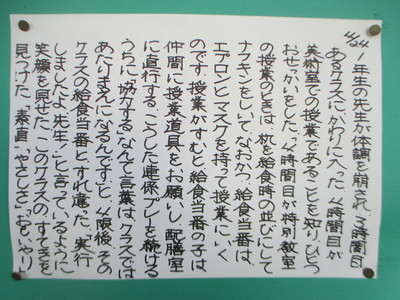 4/24 1年生の先生が体調を崩され、3時間目、
あるクラスにかわりに入った。4時間目が
美術室での授業であることを知り、ひとつ
おせっかいをした。「4時間目が特別教室
の授業のときは、机を給食時の並びにして
ナフキンをしいて、なおかつ、給食当番は、
エプロンとマスクを持って授業にいく
のです。授業がすむと給食当番の子は
仲間に授業道具をお願いし、配膳室
に直行する。こうした連係プレーを続ける
うちに「協力する」なんて言葉は、クラスでは
あたりまえになるんです」と。4限後、その
クラスの給食当番と、すれ違った。「実行
しましたよ、先生!」と言っているように
笑顔を見せた。「このクラスの、すてきを
見つけた。「素直」「やさしさ」「おもいやり」